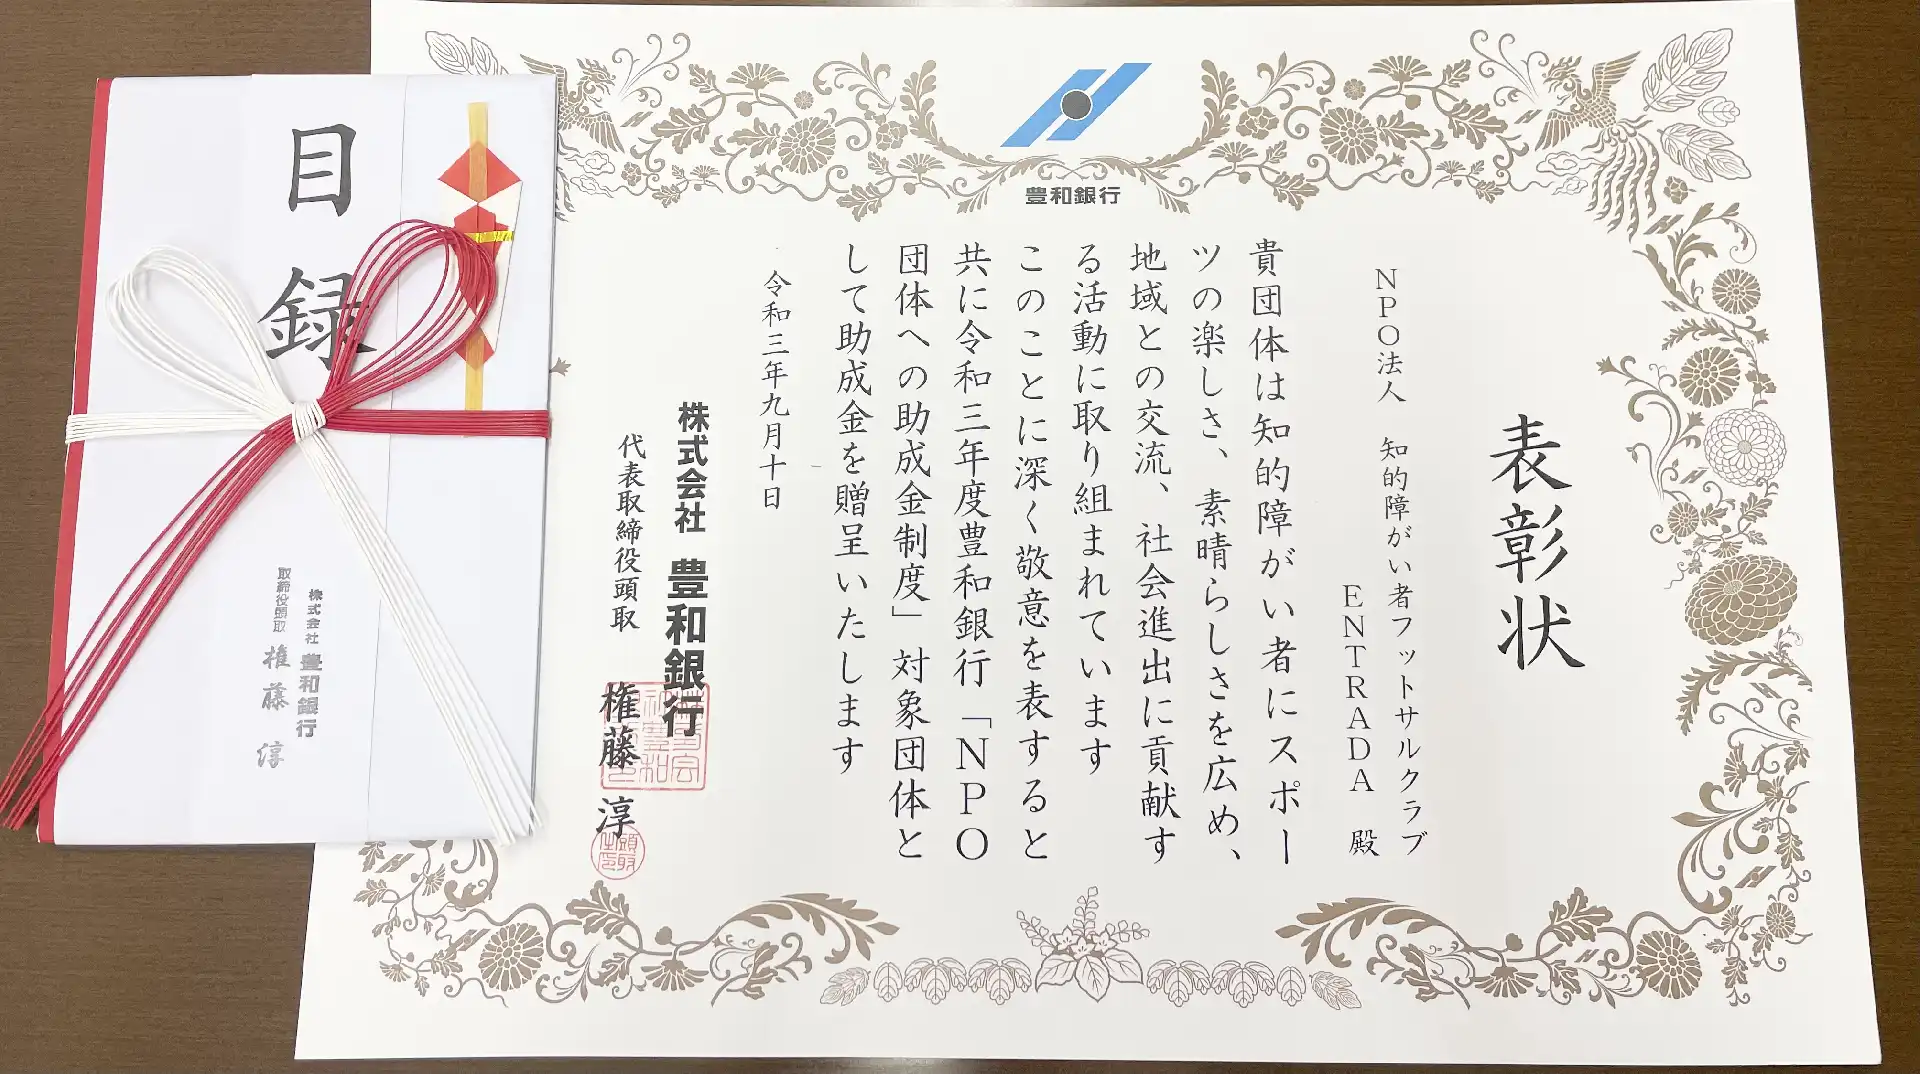 豊和銀行
表彰状
NPO法人 知的障がい者フットサルクラブ
ENTRADA 殿
貴団体は知的障がい者にスポー
ツの楽しさ、素晴らしさを広め、
地域との交流、社会進出に貢献す
る活動に取り組まれています
このことに深く敬意を表すると
共に令和三年度豊和銀行「NPO
団体への助成金制度」対象団体と
して助成金を贈呈いたします
令和三年九月十日
株式会社 豊和銀行
代表取締役頭取 権藤 淳
目録
株式会社 豊和銀行
取締役頭取 権藤 淳